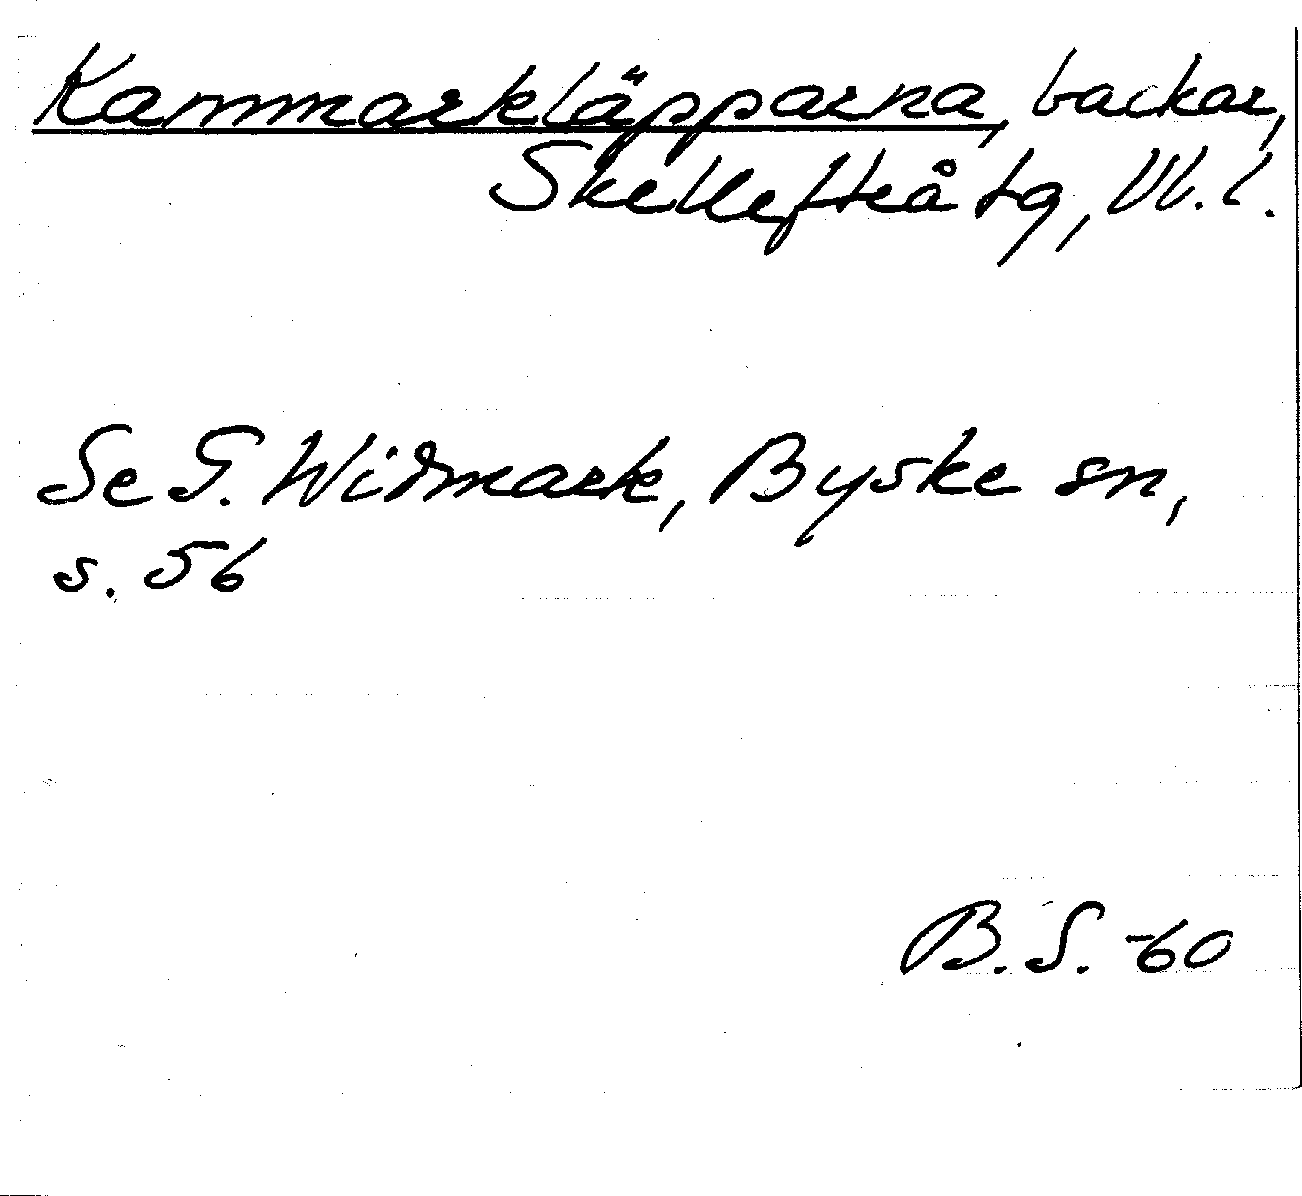 Kammarkläpparna, backar,
Skellefteå tg, Vb. l.
Se G. Widmark, Byske sn,
s. 56
B. S. -60